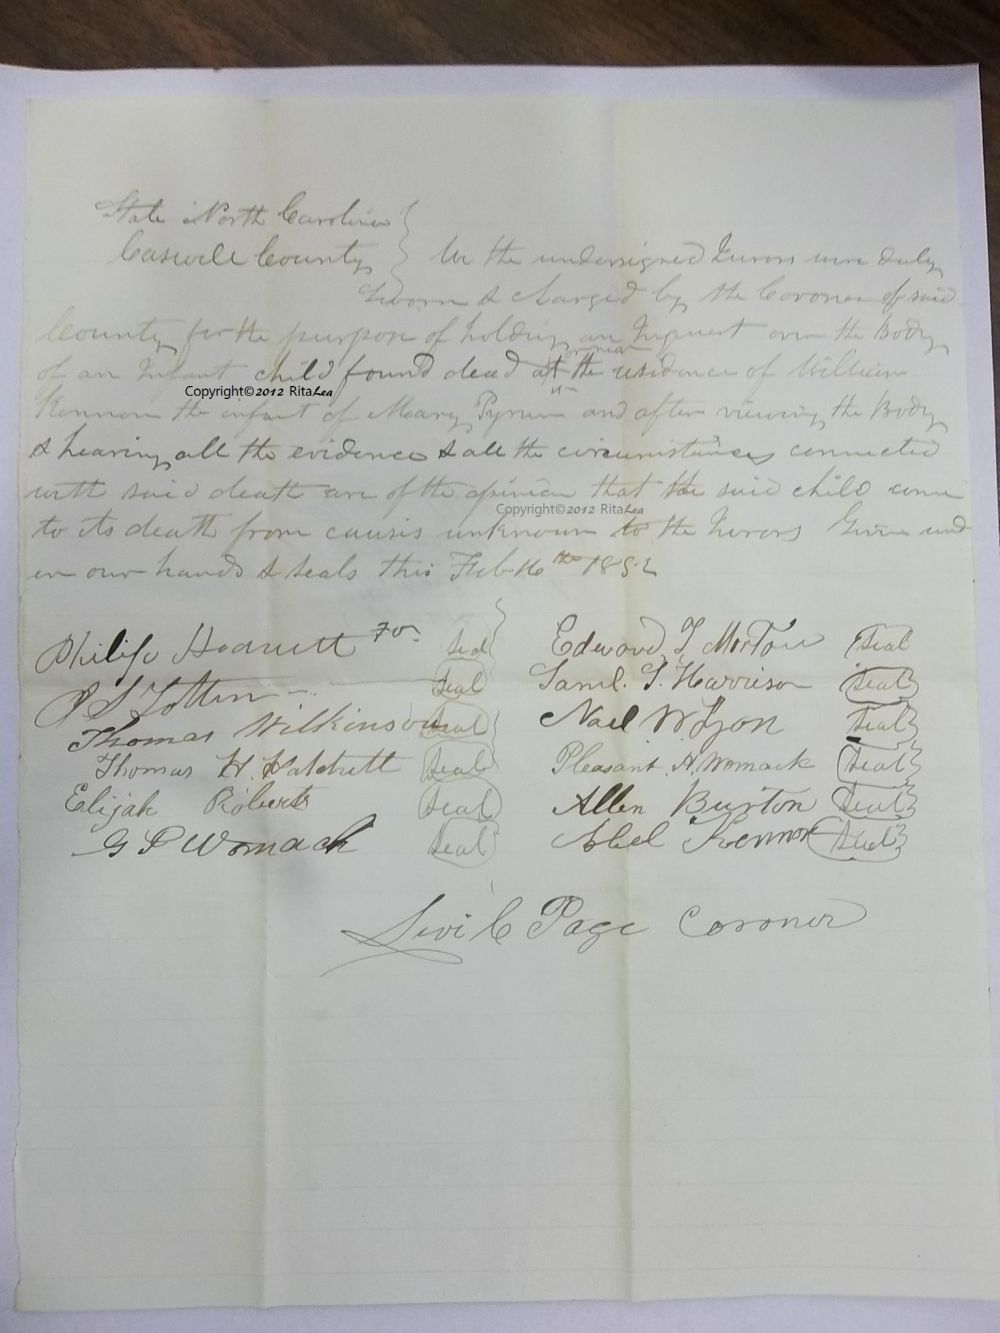 State North Carolina
Caswell County We the undersigned Jurors were duly
Sworn & Charged by the Coroner of said
County for the purpose of holding an Inquest over the Body
of an Infant child found dead at or near the residence of William
Copyright©2012 RitaLea
Kennon the infant of Mary and after viewing the Body
& hearing all the evidence & all the circumstances connected
with said death are of the opinion that the said child came
Copyright©2012 RitaLea
to its death from causis unknown to the Jurors Given und
er our hands & seals this Feb 16th 1852
Philip Seal Edward T Morton Seal
Seal Saml. T. Harrison Seal
Thomas Wilkinson Seal W Lyon Seal
Thomas H. Hatchett Seal Pleasant A. Womack Seal
Elijah Roberts Seal Allen Burton Seal
Womack Seal Abel Kennon Seal
Levi C Page Coroner